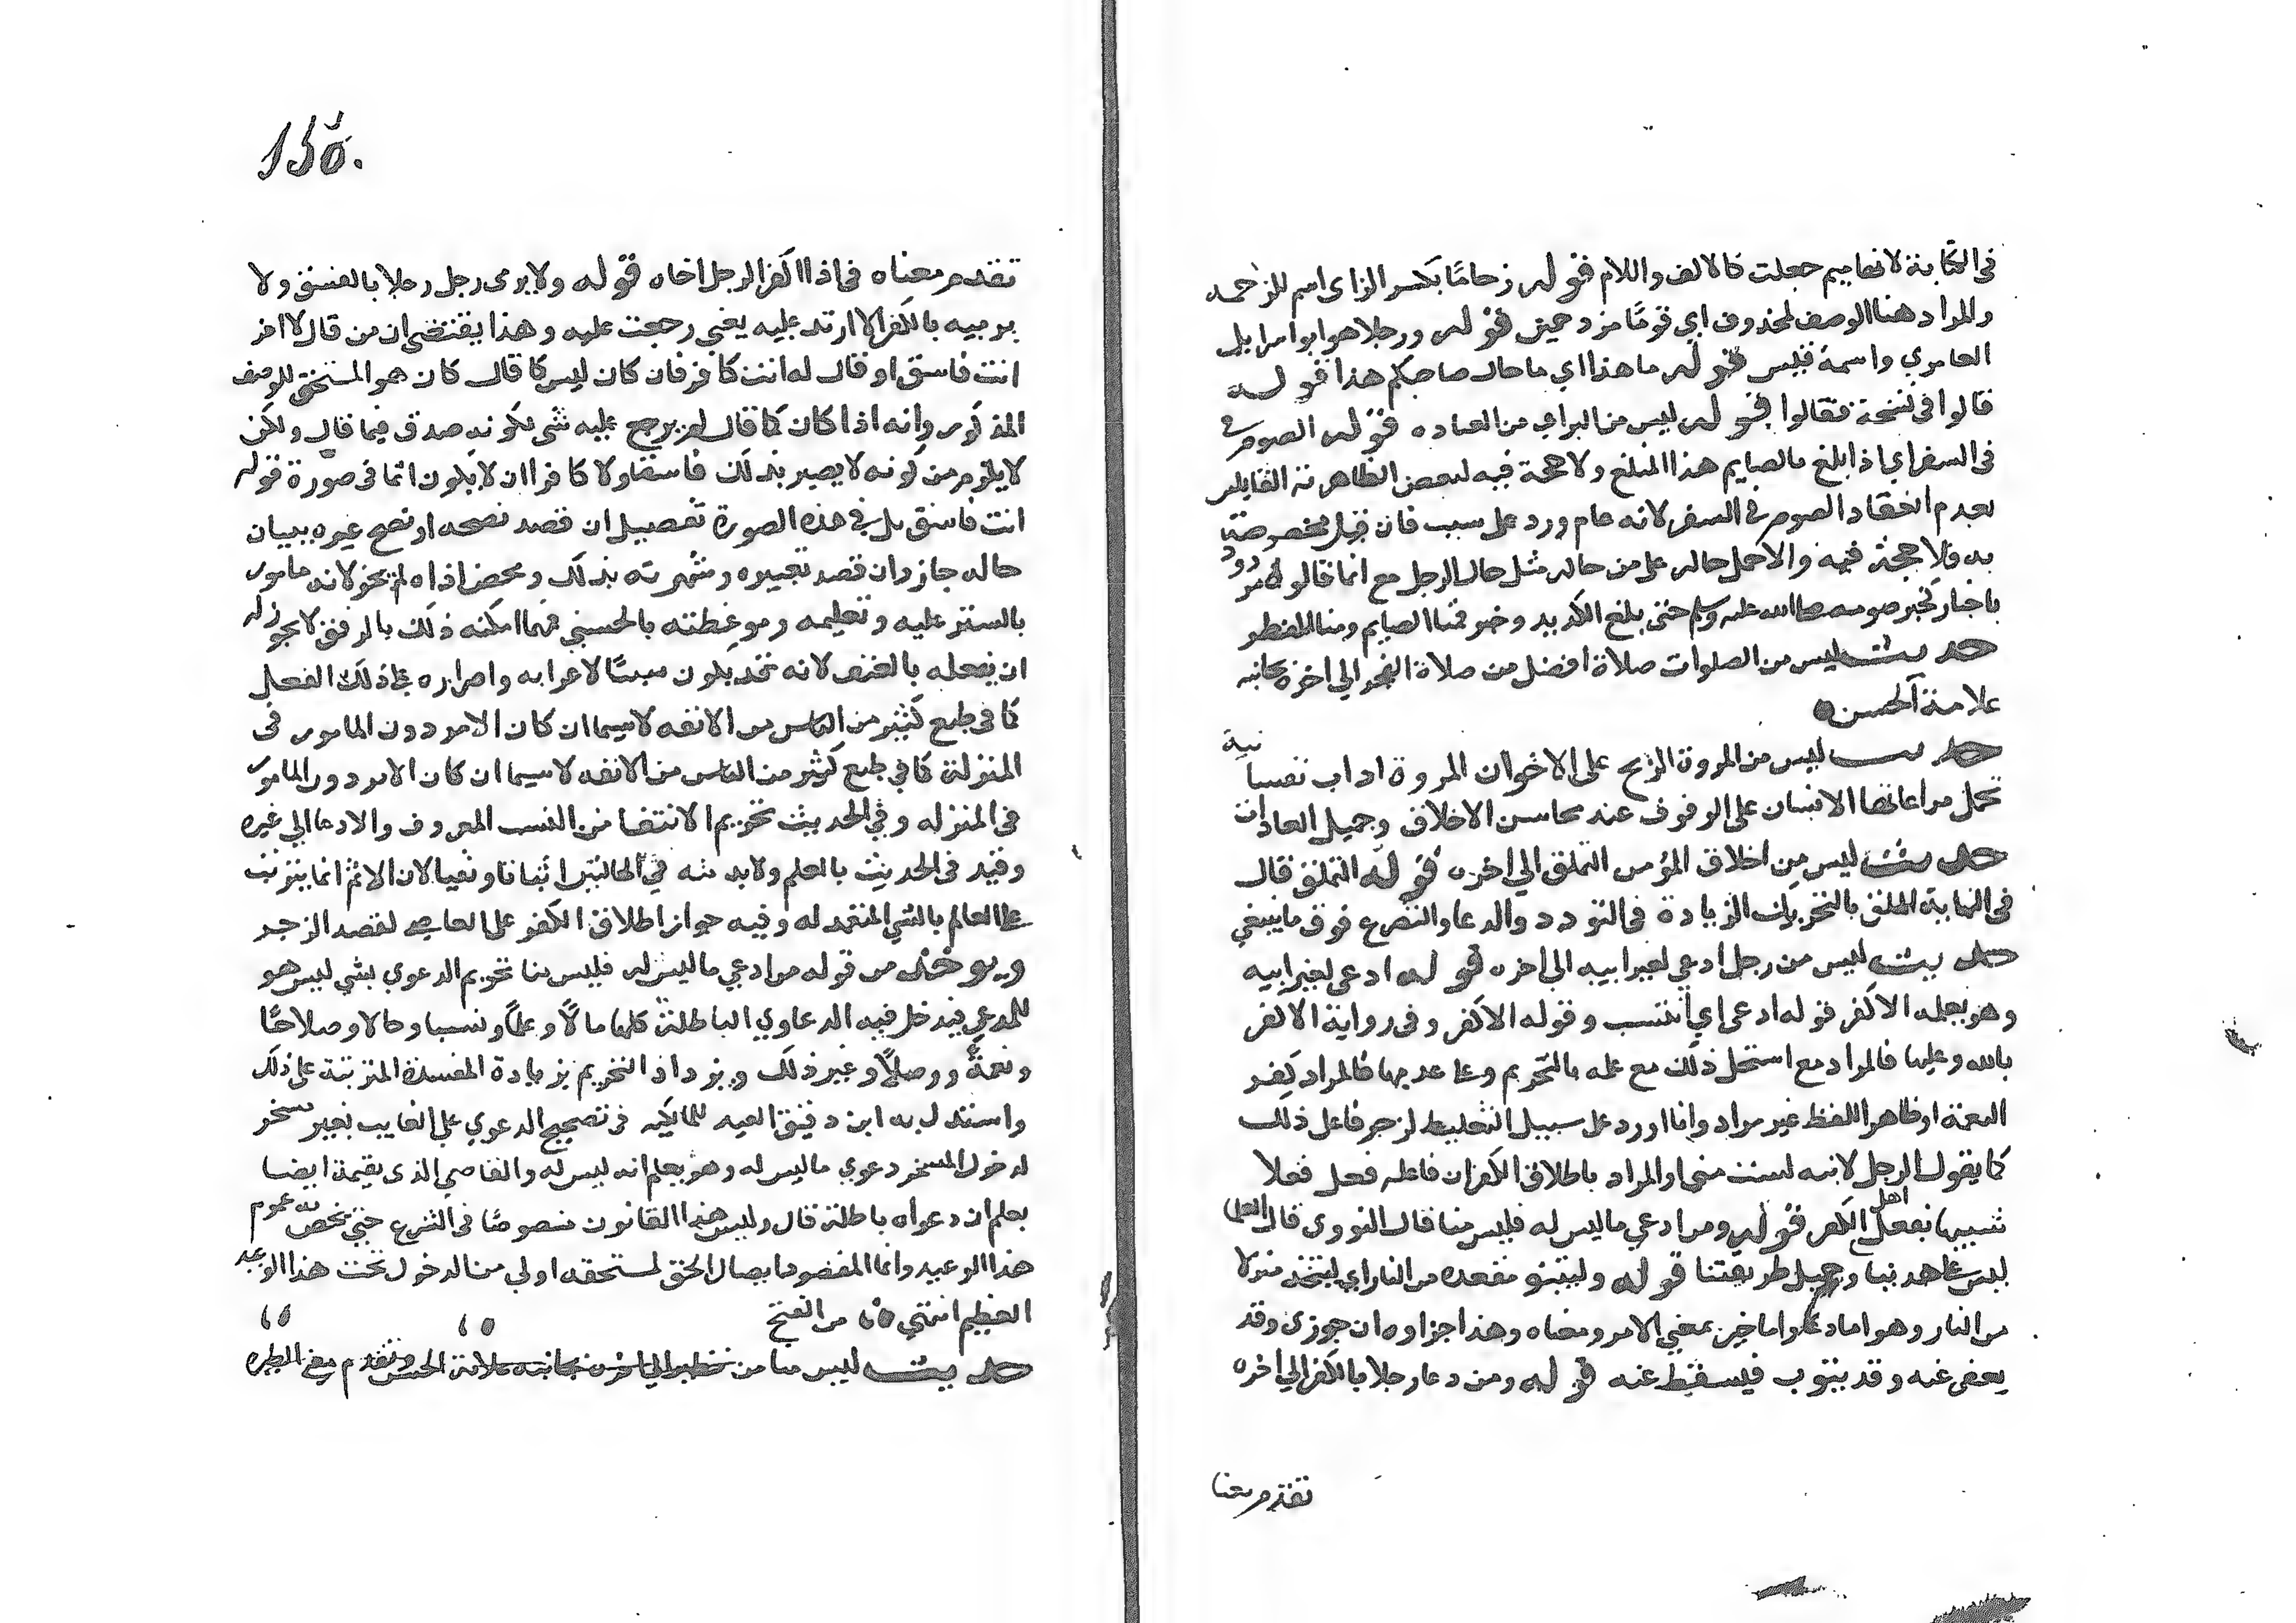 في الكتابة لانها ميم جعلت كالالف واللام قوله زحاما بكسر الزاي اسم للزحمه
والمراد هنا الوصف لمحذوف اي قوما مزدحمين قوله ورجلا هو ابو اسراييل
العامري واسمه قيس قوله ما هذا اي ما حال صاحبكم هذا قوله
قالوا في نسخة فقالوا قوله ليس من البر اي من العباده قوله الصوم
في السفر اي اذا بلغ بالصايم هذا المبلغ ولا حجة فيه لبعض الظاهرية القايلين
بعدم انعقاد الصوم في السفر لانه عام ورد على سبب فان قيل بخصوصه
به فلا حجة فيه والا حمل حاله على من حاله مثل حال الرجل مع
باخبار تخبر صومه صلى الله عليه وسلم حتى بلغ الكديد وخبر فمنا الصايم ومنا المفطر
حديث ليس من الصلوات صلاة افضل من صلاة الفجر الى اخره بجانبه
علامة الحسن
حديث ليس من المروة الربح على الاخوان المروة اداب نفسانية
تحمل مراعاتها الانسان على الوقوف عند محاسن الاخلاق وجميل العادات
حديث ليس من اخلاق المؤمن التملق الى اخره قوله التملق قال
في النهاية الملق بالتحريك الزيادة في التودد والدعا والتضرع فوق ما ينبغي
حديث ليس من رجل ادعي لغير ابيه الى اخره قوله ادعى لغير ابيه
وهو يعلمه الا كفر قوله ادعى اي انتسب وقوله الا كفر وفي رواية الا كفر
بالله وعليها فالمراد مع استحل ذلك مع علمه بالتحريم وعلى عدمها فالمراد كفر
النعمة او ظاهر اللفظ غير مراد وانما اورد على سبيل التغليظ لزجر فاعل ذلك
كما يقول الرجل لابنه لست مني او المراد باطلاق الكفر ان فاعله فعل فعلا
شبيها بفعل اهل الكفر قوله ومن ادعي ما ليس له فليس منا قال النووي قال العلما
ليس على هدينا وجميل طريقتنا قوله وليتبو مقعده من النار اي ليتخذ منزلا
من النار وهو اما دعا واما خبر بمعني الامر ومعناه وهذا جزاوه ان جوزي وقد
يعفى عنه وقد يتوب فيسقط عنه قوله ومن دعا رجلا بالكفر الى اخره
تقدم معنا
150.
تقدم معناه في اذا اكفر الرجل اخاه قوله ولا يرمى رجل رجلا بالفسق ولا
يرميه بالكفر الا ارتد عليه يعني رجعت عليه وهذا يقتضي ان من قال لاخر
انت فاسق او قال له انت كافر فان كان ليس كما قال كان هو المستحق للوصف
المذكور وانه اذا كان كما قال لم يرجع عليه شي لكونه صدق فيما قال ولكن
لا يلزم من كونه لا يصير بذلك فاسقا ولا كافرا ان لا يكون اثما في صورة قوله
انت فاسق بل في هذه الصورة تفصيل ان قصد نصحه او نصح غيره ببيان
حاله جاز وان قصد تعييره وشهرته بذلك ومحض اذاه لم يجز لانه مامور
بالستر عليه وتعليمه وموعظته بالحسنى فمهما امكنه ذلك بالرفق لا يجوز له
ان يفعله بالعنف لانه قد يكون سببا لاغرايه واصراره على ذلك الفعل
كما في طبع كثير من الناس من الانفه لا سيما ان كان الامر دون المامور في
المنزلة كما في طبع كثير من الناس من الانفه لا سيما ان كان الامر دون المامور
في المنزله وفي الحديث تحريم الانتفا من النسب المعروف والادعا الى غيره
وقيد في الحديث بالعلم ولا بد منه في الحالتين اثباتا ونفيا لان الاثم انما يترتب
على العالم بالشي المتعمد له وفيه جواز اطلاق الكفر على المعاصي لقصد الزجر
ويوخذ من قوله من ادعي ما ليس له فليس منا تحريم الدعوي بشي ليس هو
للمدعي فيدخل فيه الدعاوي الباطلة كلها مالا وعلما ونسبا وحالا وصلاحا
ونعمة ووصلا وغير ذلك ويزداد التحريم بزيادة المفسدة المترتبة على ذلك
واستدل به ابن دقيق العيد للمالكيه في تصحيح الدعوي على الغايب بغير مسخر
لدخول المسخر دعوي ما ليس له وهو يعلم انه ليس له والقاضي الذي يقيمه ايضا
يعلم ان دعواه باطلة قال وليس هذا القانون منصوصا في الشرع حتى يخص به عموم
هذا الوعيد وانما المقصود ايصال الحق لمستحقه اولي من الدخول تحت هذا الوعيد
العظيم انتهي من الفتح
حديث ليس منا من تطير الى اخره بجانبه علامة الحسن وتقدم معنى الطيره